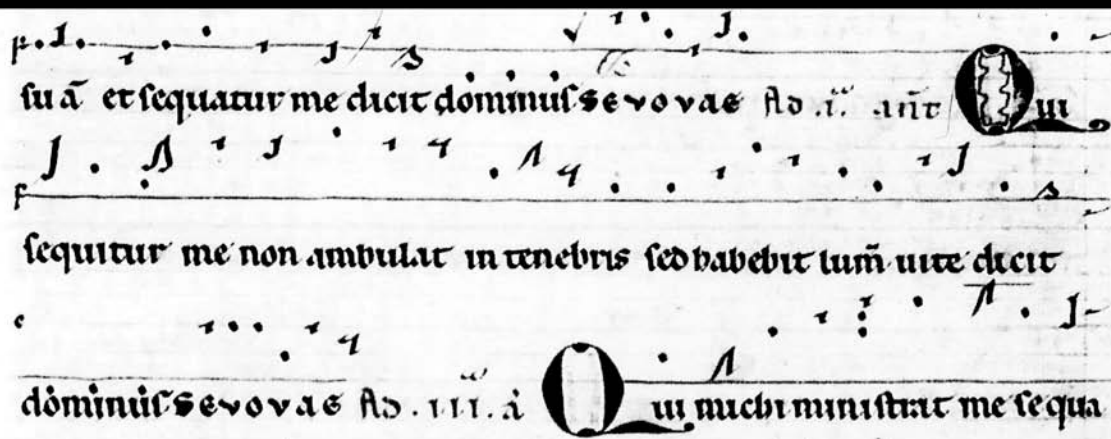 su ā et sequatur me dicit dominus seuouae Ad .i. ant Qui
sequitur me non ambulat in tenebris sed habebit lum̄ uite dicit
dominus seuouae Ad .III. a Qui michi ministrat me sequa